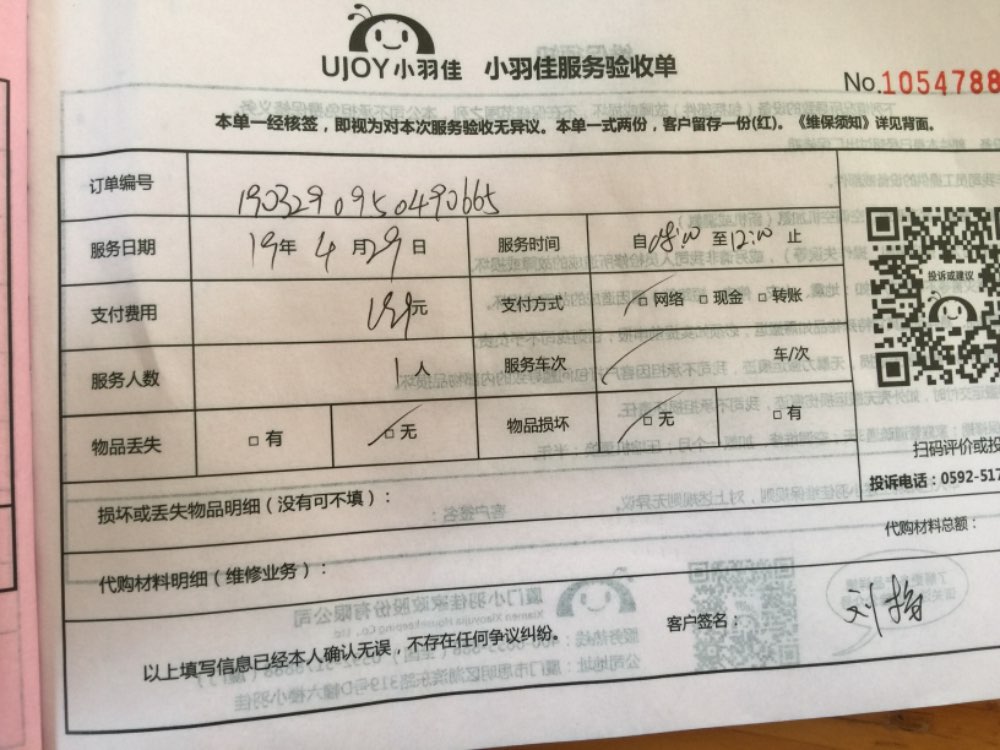 UJOY小羽佳 小羽佳服务验收单
No.1054788
本单一经核签，即视为对本次服务验收无异议。本单一式两份，客户留存一份(红)。《维保须知》详见背面。
订单编号 1903290950490665
服务日期 19年 4月29日 服务时间 自08:00至12:00止
支付费用 元 支付方式 □网络 □现金 □转账
服务人数 1人 服务车次 车/次
物品丢失 □有 □无 物品损坏 □无 □有
投诉或建议
扫码评价或投
投诉电话：0592-517
损坏或丢失物品明细（没有可不填）：
代购材料总额：
代购材料明细（维修业务）：
客户签名：
以上填写信息已经本人确认无误，不存在任何争议纠纷。